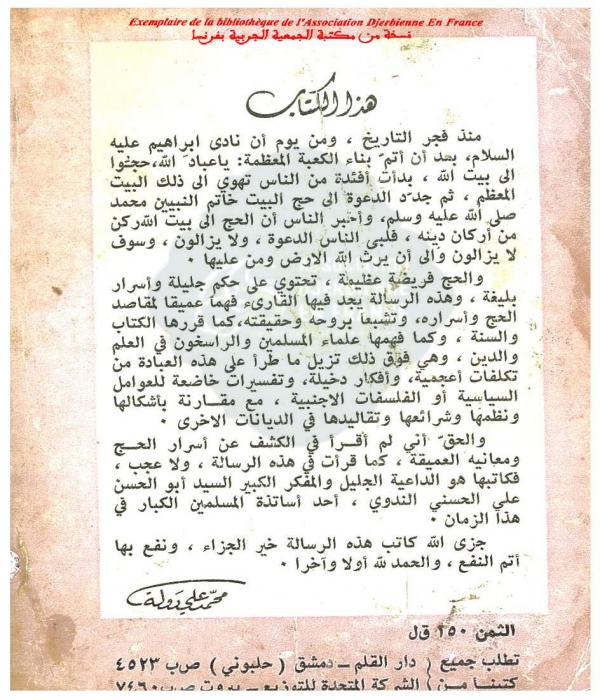 Exemplaire de la bibliothèque de l'Association Djerbienne En France
نسخة من مكتبة الجمعية الجربية بفرنسا
هذا الكتاب
منذ فجر التاريخ ، ومن يوم أن نادى ابراهيم عليه
السلام، بعد أن أتم ّ بناء الكعبة المعظمة: ياعباد َ الله،حجّوا
الى بيت الله ، بدأت أفئدة من الناس تهوي الى ذلك البيت
المعظم ، ثم جدّد الدعوة الى حج البيت خاتم النبيين محمد
صلى الله عليه وسلم، وأخبر الناس أن الحج الى بيت الله ركن
من أركان دينه ، فلبى الناس الدعوة ، ولا يزالون ، وسوف
لا يزالون والى أن يرث الله الارض ومن عليها ٠
والحج فريضة عظيمة ، تحتوي على حكم جليلة وأسرار
بليغة ، وهذه الرسالة يجد فيها القارىء فهما عميقا لمقاصد
الحج وأسراره، وتشبعا بروحه وحقيقته،كما قررها الكتاب
والسنة ، وكما فهمها علماء المسلمين والراسخون في العلم
والدين ، وهي فوق ذلك تزيل ما طرأ على هذه العبادة من
تكلفات أعجمية، وأفكار دخيلة، وتفسيرات خاضعة للعوامل
السياسية أو الفلسفات الاجنبية ، مع مقارنة بأشكالها
ونظمها وشرائعها وتقاليدها في الديانات الاخرى ٠
والحق ّ أني لم أقرأ في الكشف عن أسرار الحج
ومعانيه العميقة ، كما قرأت في هذه الرسالة ، ولا عجب ،
فكاتبها هو الداعية الجليل والمفكر الكبير السيد أبو الحسن
علي الحسني الندوي ، أحد أساتذة المسلمين الكبار في
هذا الزمان ٠
جزى الله كاتب هذه الرسالة خير الجزاء ، ونفع بها
أتم النفع ، والحمد لله أولا وآخرا ٠
محمد علي دولة
الثمن ٢٥٠ ق ل
تطلب جميع ( دار القلم – دمشق ( حلبوني ) ص ب ٤٥٢٣
كتبنا من ( الشركة المتحدة للتوزيع – بيروت ص ب ٧٤٦٠